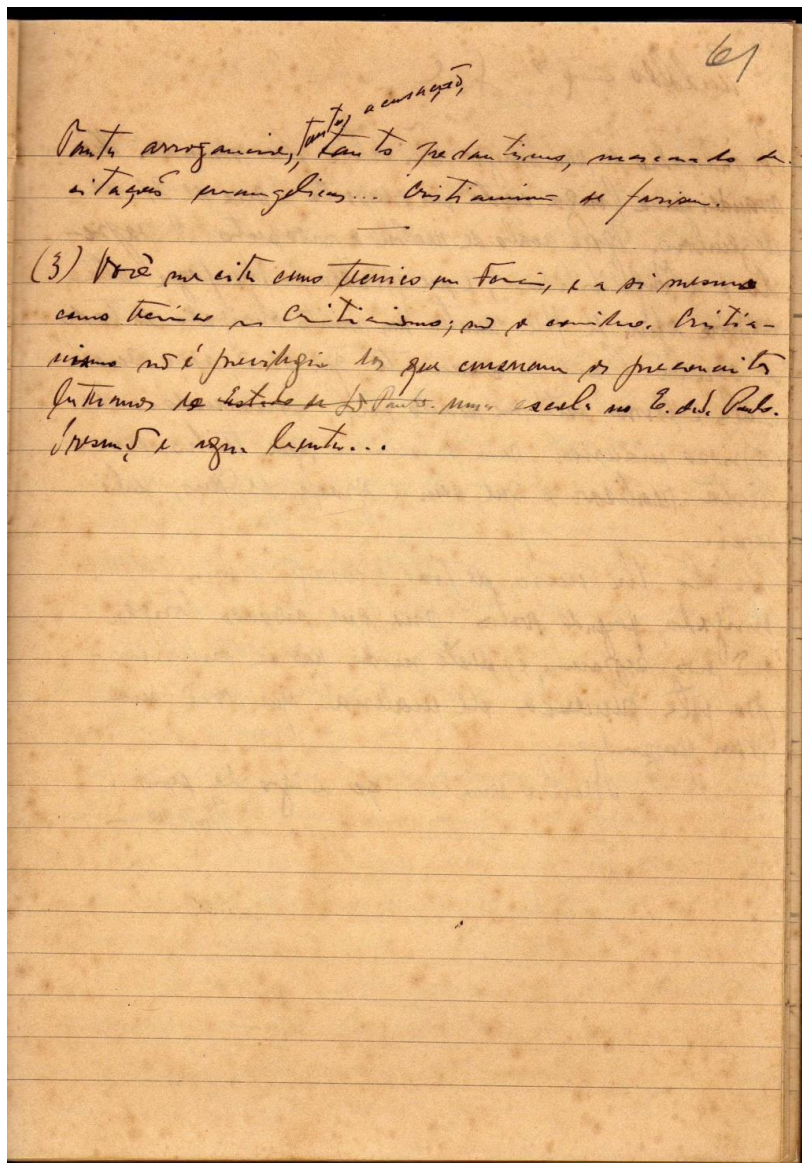 61
tanta acusação,
Tanta arrogancia, tanto pedantismo, mascarado de
citações evangelicas... Cristianismo de fariseu.
(3) Você me cita como tecnico em , e a si mesmo
como tecnico em Cristianismo; não o conhece. Cristia-
nismo não é privilegio dos que conservam os preconceitos
de Estado de São Paulo. numa escola no E. de S. Paulo.
e agua benta...